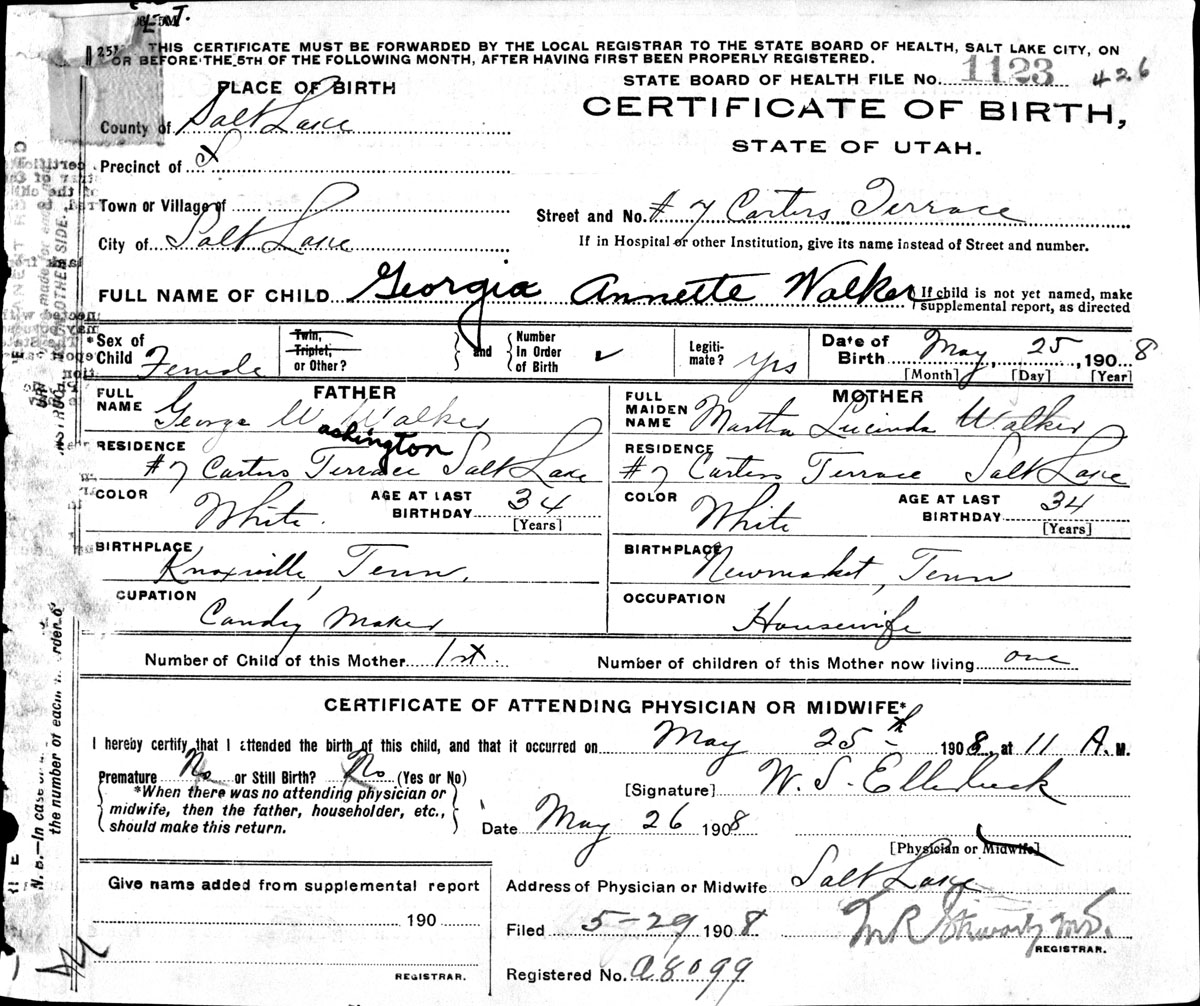 THIS CERTIFICATE MUST BE FORWARDED BY THE LOCAL REGISTRAR TO THE STATE BOARD OF HEALTH, SALT LAKE CITY, ON
OR BEFORE THE 5TH OF THE FOLLOWING MONTH, AFTER HAVING FIRST BEEN PROPERLY REGISTERED.
STATE BOARD OF HEALTH FILE No. 1123 426
PLACE OF BIRTH
CERTIFICATE OF BIRTH,
STATE OF UTAH.
County of Salt Lake
Precinct of
Town or Village of
City of Salt Lake
Street and No. # 7 Carters Terrace
If in Hospital or other Institution, give its name instead of Street and number.
FULL NAME OF CHILD Georgia Annette Walker
If child is not yet named, make
supplemental report, as directed
*Sex of Child Female
Twin, Triplet, or Other?
and
Number In Order of Birth
Legiti-mate? Yes
Date of Birth May 25, 1908
[Month] [Day] [Year]
FATHER
FULL NAME George Washington Walker
RESIDENCE #7 Carters Terrace Salt Lake
COLOR White.
AGE AT LAST BIRTHDAY 34
[Years]
BIRTHPLACE Knoxville, Tenn.
CUPATION Candy Maker
MOTHER
FULL MAIDEN NAME Martha Lucinda Walker
RESIDENCE #7 Carters Terrace Salt Lake
COLOR White
AGE AT LAST BIRTHDAY 34
[Years]
BIRTHPLACE Newmarket, Tenn
OCCUPATION Housewife
Number of Child of this Mother 1st
Number of children of this Mother now living one
CERTIFICATE OF ATTENDING PHYSICIAN OR MIDWIFE*
I hereby certify that I attended the birth of this child, and that it occurred on May 25th 1908, at 11 A. M.
Premature No or Still Birth? No (Yes or No)
*When there was no attending physician or
midwife, then the father, householder, etc.,
should make this return.
[Signature] W. S. Ellerbeck
Date May 26 1908
[Physician or Midwife]
Give name added from supplemental report
190
REGISTRAR.
Address of Physician or Midwife Salt Lake
Filed 5-29 1908
REGISTRAR.
Registered No. a8099
N. B.—In case of
the number of each